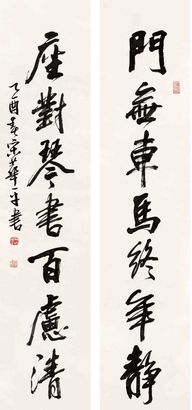 門無車馬終年靜
座對琴書百慮清
乙酉春宗華平書